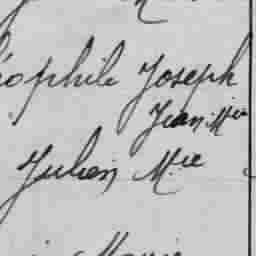 éophile Joseph
Jean Mie
Julien M.ie
Marie